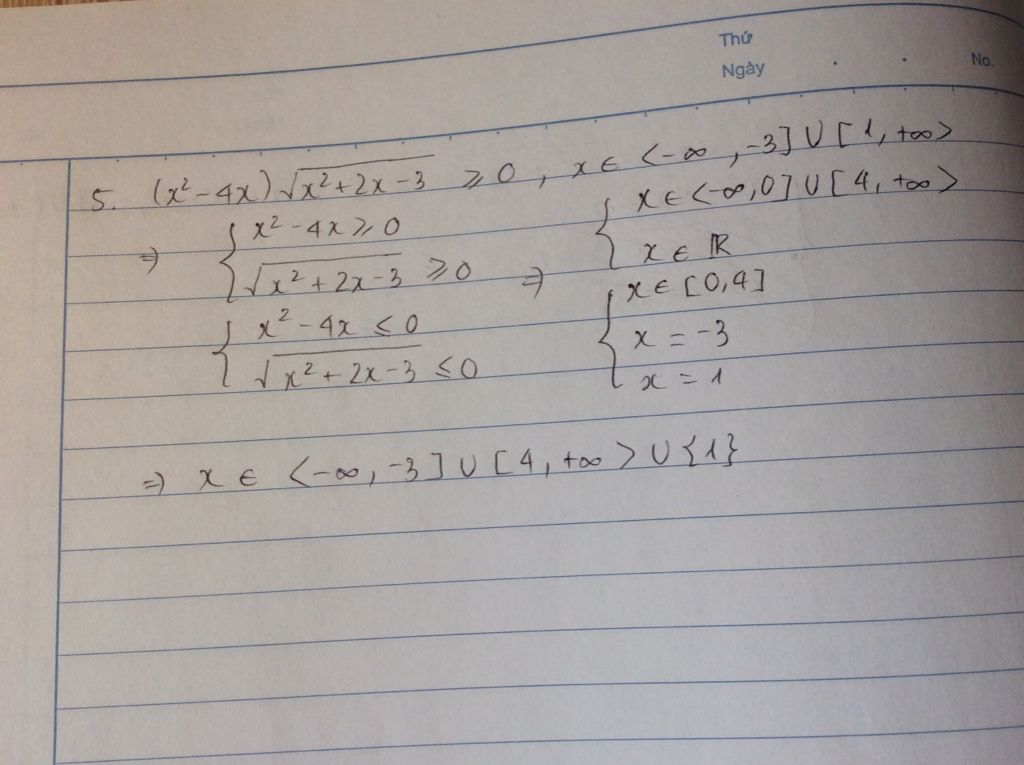 Thứ
Ngày . . No.
5. (x² - 4x)√(x² + 2x - 3) ⩾ 0 , x ∈ <-∞ , -3] ∪ [1, +∞>
⇒ { x² - 4x ⩾ 0 { x ∈ <-∞, 0] ∪ [4, +∞>
√(x² + 2x - 3) ⩾ 0 ⇒ x ∈ ℝ
{ x² - 4x ≤ 0 { x ∈ [0,4]
√(x² + 2x - 3) ≤ 0 x = -3
x = 1
⇒ x ∈ <-∞, -3] ∪ [4, +∞> ∪ {1}